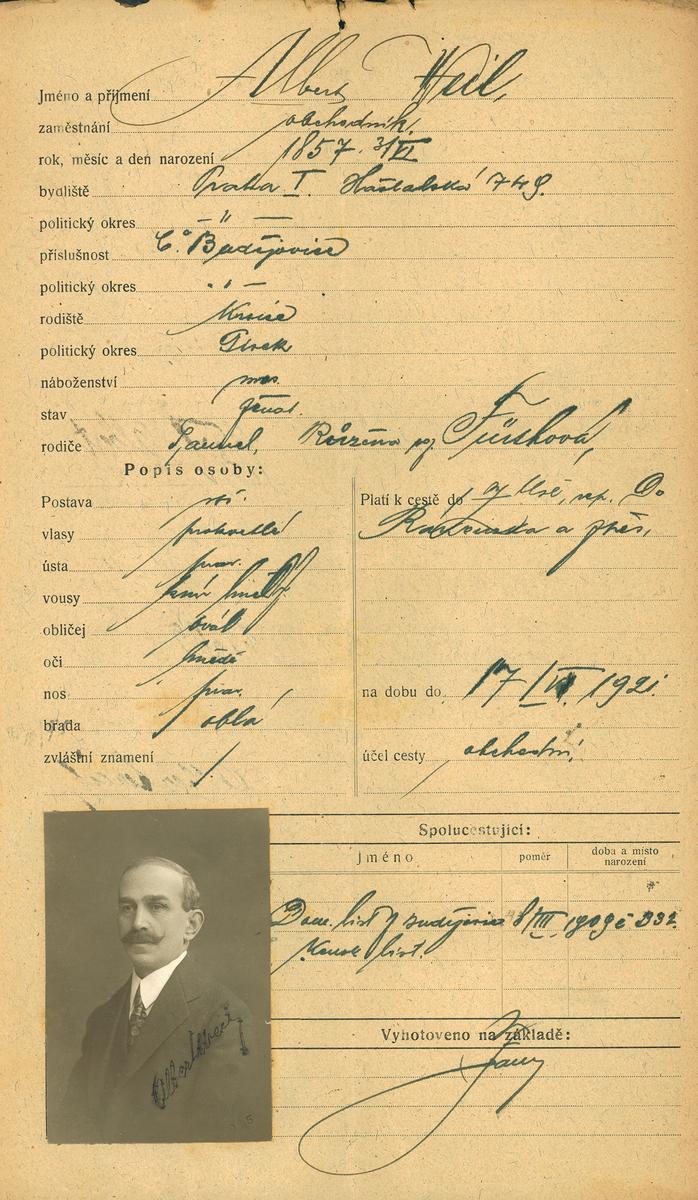 Jméno a příjmení Albert Weil,
zaměstnání obchodník.
rok, měsíc a den narození 1857. 3/VI
bydliště Praha I. Haštalská 749.
politický okres — " —
příslušnost Č. Budějovice
politický okres " —
rodiště
politický okres Písek
náboženství mos.
stav ženat.
rodiče Samuel, Růžena
Popis osoby:
Postava stř.
vlasy prošedlé
ústa prav.
vousy knír
obličej ovál
oči hnědé
nos prav.
brada oblá
zvláštní znamení /
Platí k cestě do
Rakouska a zpět,
na dobu do 17/VI. 1921.
účel cesty obchodní.
Spolucestující:
jméno poměr doba a místo narození
Dom. list z Budějovic 8/III 1909 č 332.
list.
Vyhotoveno na základě:
Albert Weil